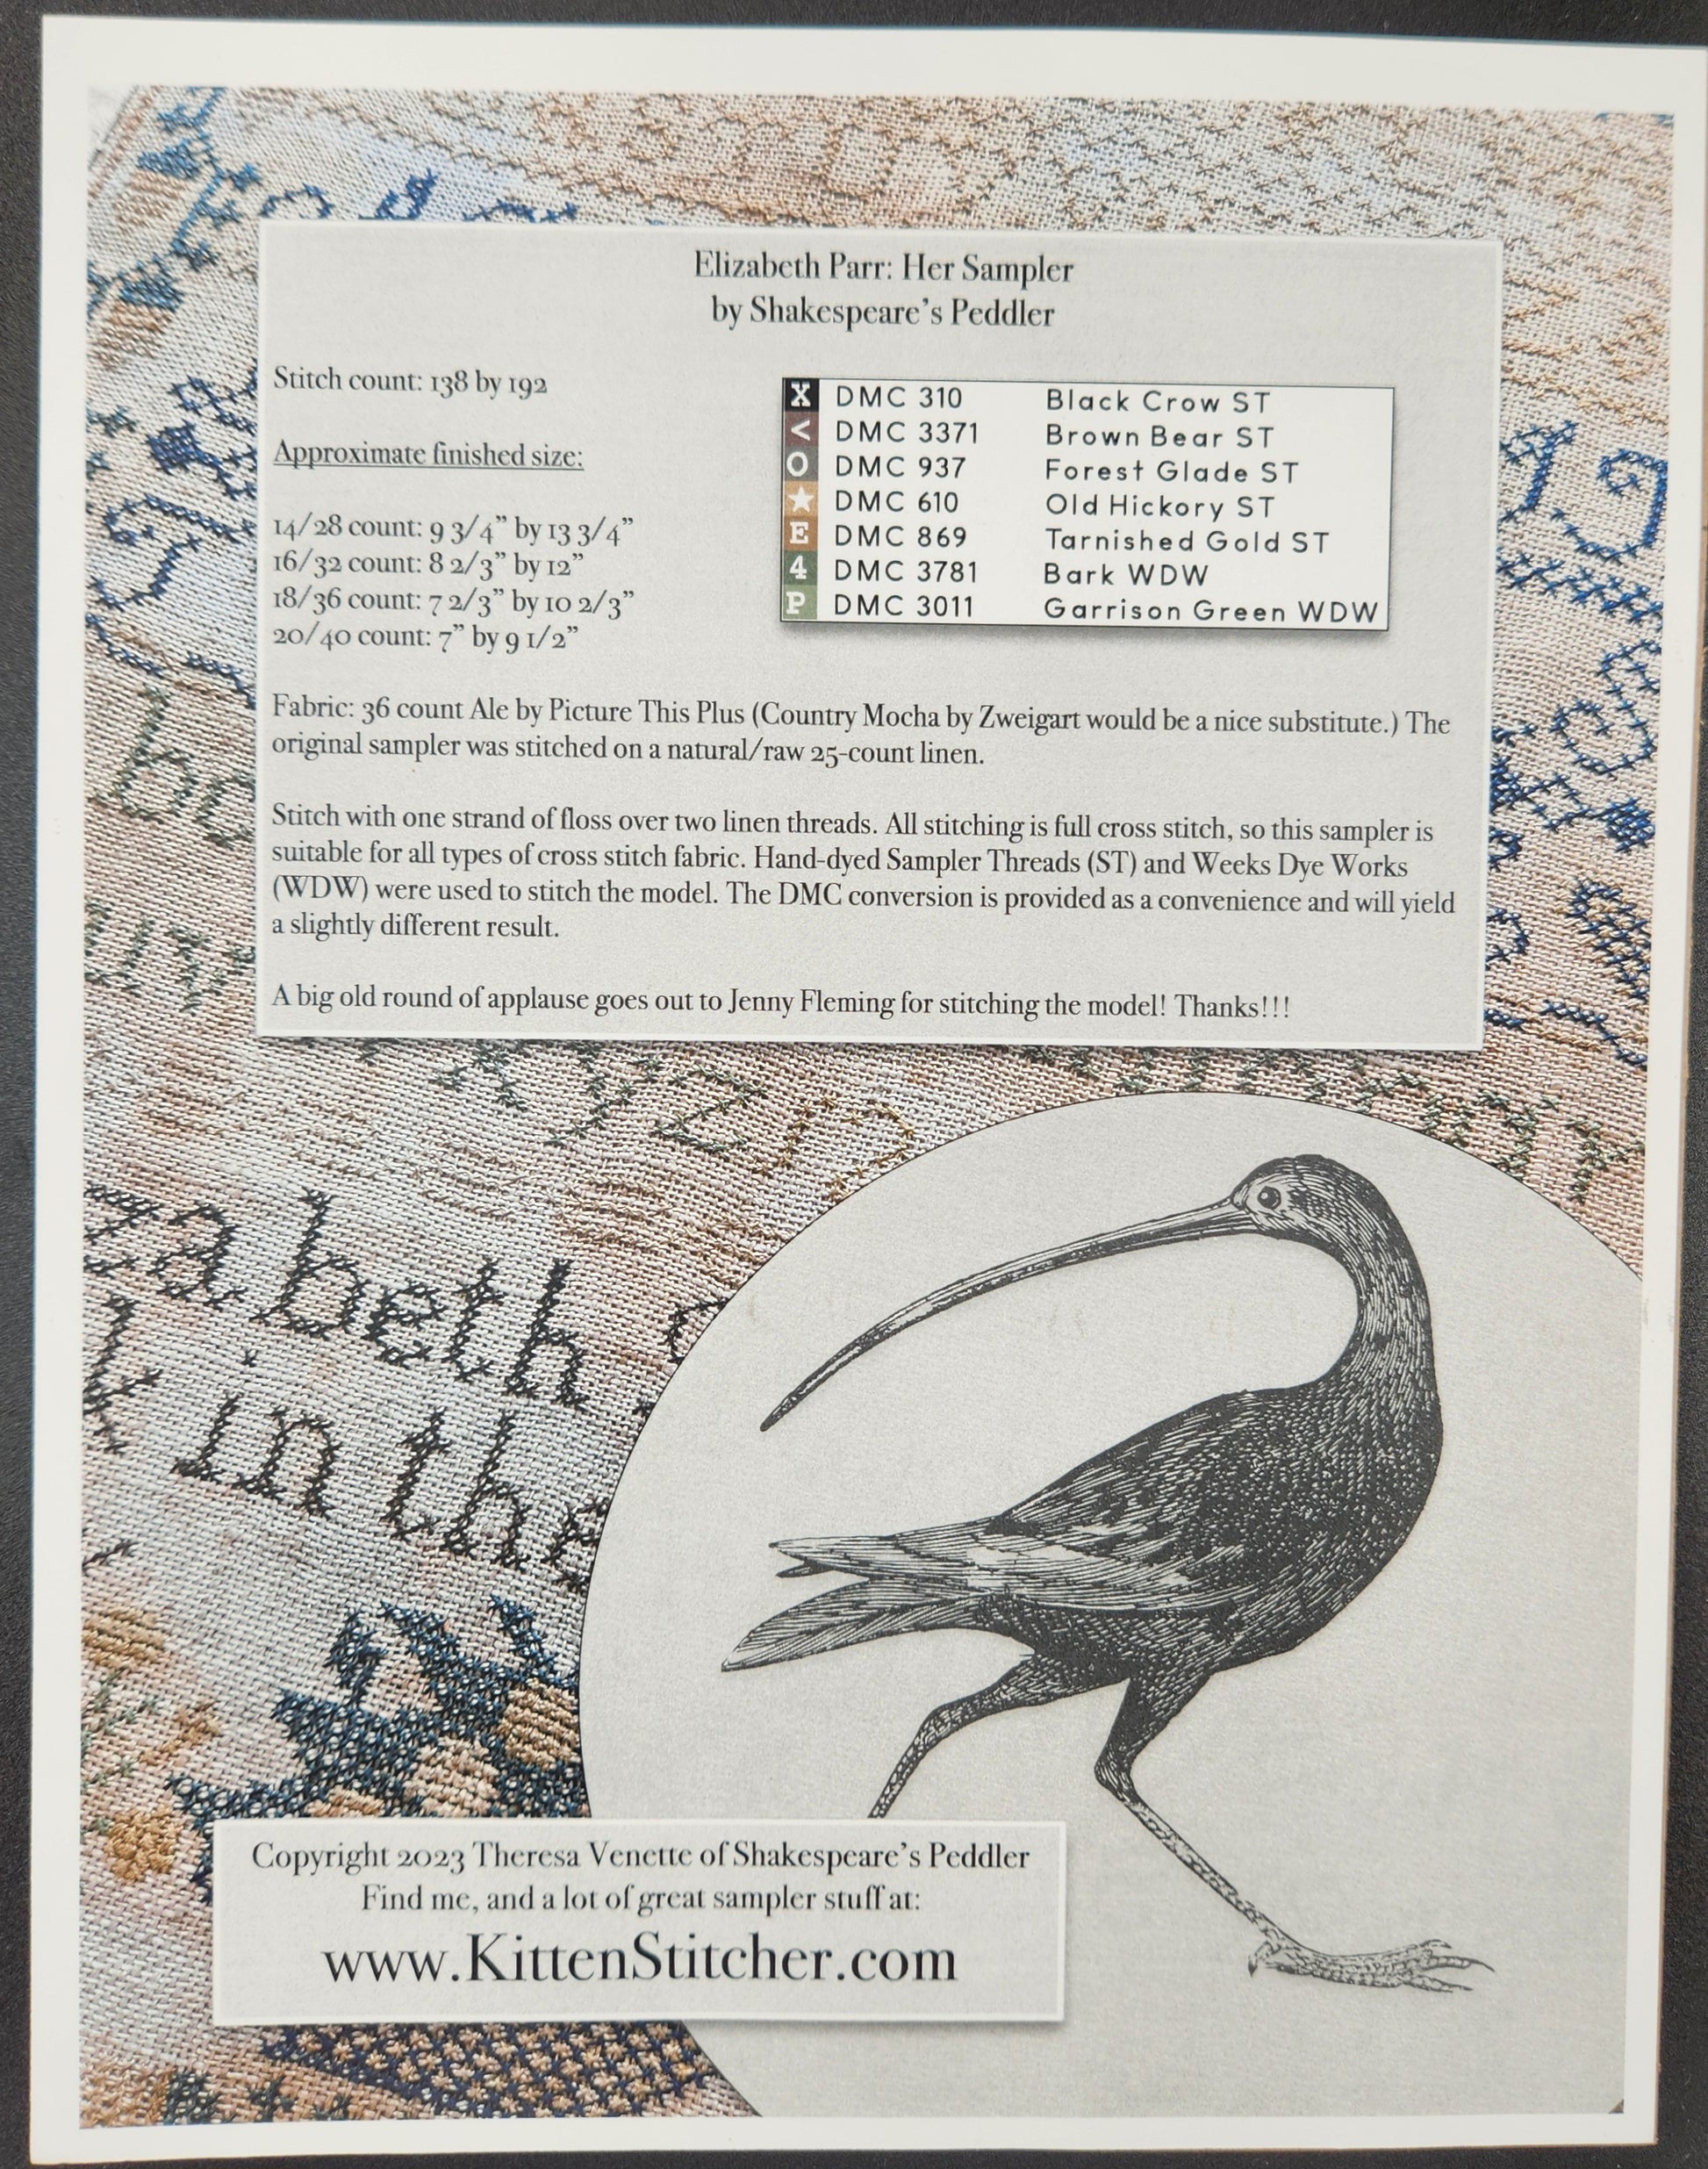 Elizabeth Parr: Her Sampler
by Shakespeare's Peddler
Stitch count: 138 by 192
Approximate finished size:
14/28 count: 9 3/4” by 13 3/4”
16/32 count: 8 2/3” by 12”
18/36 count: 7 2/3” by 10 2/3”
20/40 count: 7” by 9 1/2”
X DMC 310 Black Crow ST
< DMC 3371 Brown Bear ST
O DMC 937 Forest Glade ST
★ DMC 610 Old Hickory ST
E DMC 869 Tarnished Gold ST
4 DMC 3781 Bark WDW
P DMC 3011 Garrison Green WDW
Fabric: 36 count Ale by Picture This Plus (Country Mocha by Zweigart would be a nice substitute.) The
original sampler was stitched on a natural/raw 25-count linen.
Stitch with one strand of floss over two linen threads. All stitching is full cross stitch, so this sampler is
suitable for all types of cross stitch fabric. Hand-dyed Sampler Threads (ST) and Weeks Dye Works
(WDW) were used to stitch the model. The DMC conversion is provided as a convenience and will yield
a slightly different result.
A big old round of applause goes out to Jenny Fleming for stitching the model! Thanks!!!
za beth
in the
Copyright 2023 Theresa Venette of Shakespeare's Peddler
Find me, and a lot of great sampler stuff at:
www.KittenStitcher.com